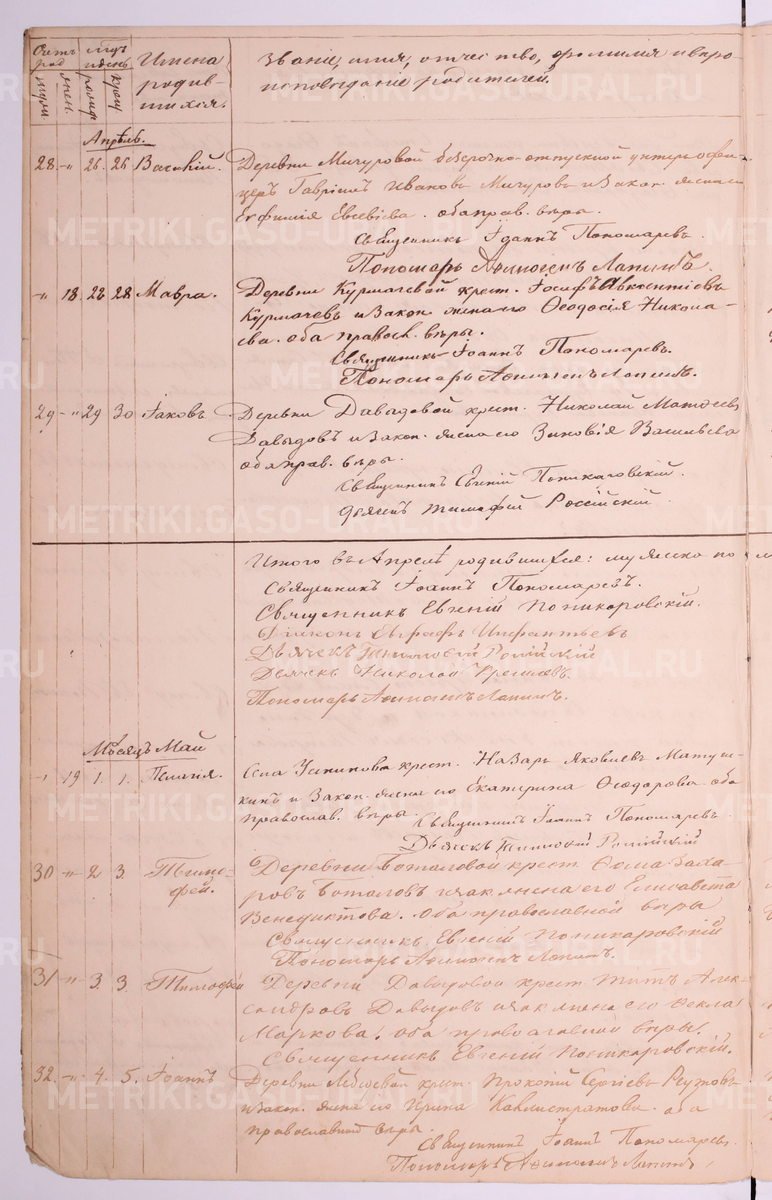 Счетъ род. мѣс. и день
Имена
Званіе, имя, отчество, фамилія и вѣро-
родив-
исповѣданіе родителей.
шихся.
муж. жен. рожд. крещ.
Апрѣль.
28. -"- 26. 26 Василій. Деревни Мичуровой безсрочно-отпускной унтеръ-офи-
церъ Гавріилъ Ивановъ Мичуровъ и закон. жена его
Евфимія Евсевіева. оба прав. вѣры.
Священникъ Іоаннъ Пономаревъ.
Пономарь Афиногенъ Лапинъ.
-"- 18. 28 28. Мавра. Деревни Курмачевой крест. Іосифъ Авксентіевъ
Курмачевъ и закон. жена его Ѳеодосія Никола-
ева. оба правосл. вѣры.
Священникъ Іоаннъ Пономаревъ.
Пономарь Афиногенъ Лапинъ.
29 -"- 29 30 Іаковъ. Деревни Давыдовой крест. Николай Матѳеевъ
Давыдовъ и закон. жена его Зиновія Васильева
оба прав. вѣры.
Священникъ Евгеній Поникаровскій.
Дьячекъ Тимофей Россійскій.
Итого въ Апрѣлѣ родившихся: мужеска по
Священникъ Іоаннъ Пономаревъ.
Священникъ Евгеній Поникаровскій.
Діаконъ Евграфъ Инфантьевъ
Дьячекъ Тимофей Россійскій
Дьячекъ Николай
Пономарь Афиногенъ Лапинъ.
Мѣсяцъ Май
-"- 19 1. 1. Села крест. Назаръ Яковлевъ Матуш-
кинъ и закон. жена его Екатерина Ѳеодорова оба
православ. вѣры.
Священникъ Іоаннъ Пономаревъ.
Дьячекъ Тимофей Россійскій
30 -"- 2 3. Тимо- Деревни Боталовой крест. Ѳома Заха-
фей. ровъ Боталовъ и зак жена его Елисавета
Венедиктова. Оба православной вѣры
Священникъ Евгеній Поникаровскій
Пономарь Афиногенъ Лапинъ.
31 -"- 3. 3. Тимофей Деревни Давыдовой крест. Титъ Алек-
сандровъ Давыдовъ и зак жена его Ѳекла
Маркова. Оба православной вѣры.
Священникъ Евгеній Поникаровскій.
32. -"- 4. 5. Іоаннъ Деревни крест. Прокопій Сергіевъ
и закон. жена его Ирина Каллистратова. оба
православной вѣры.
Священникъ Іоаннъ Пономаревъ.
Пономарь Афиногенъ Лапинъ
METRIKI.GASO-URAL.RU